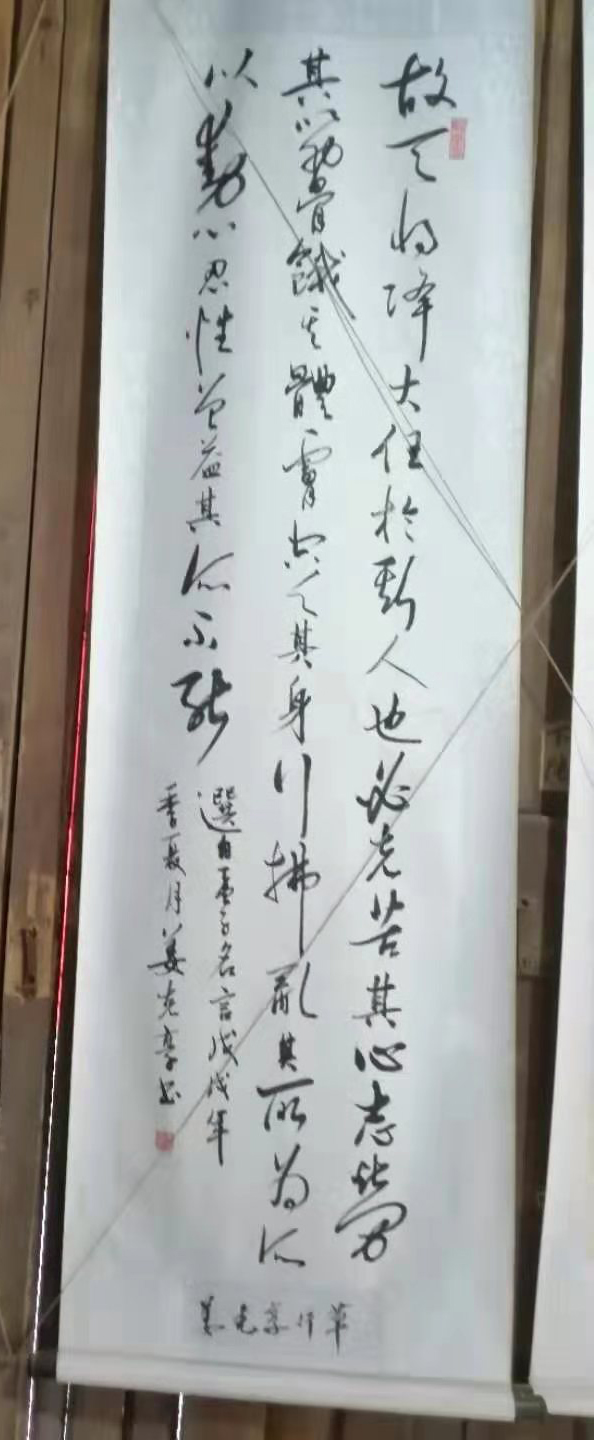 故天将降大任於斯人也必先苦其心志勞
其筋骨餓其體膚空乏其身行拂亂其所為所
以動心忍性曾益其所不能
選自孟子名言戊戌年
季夏月姜书
姜行草